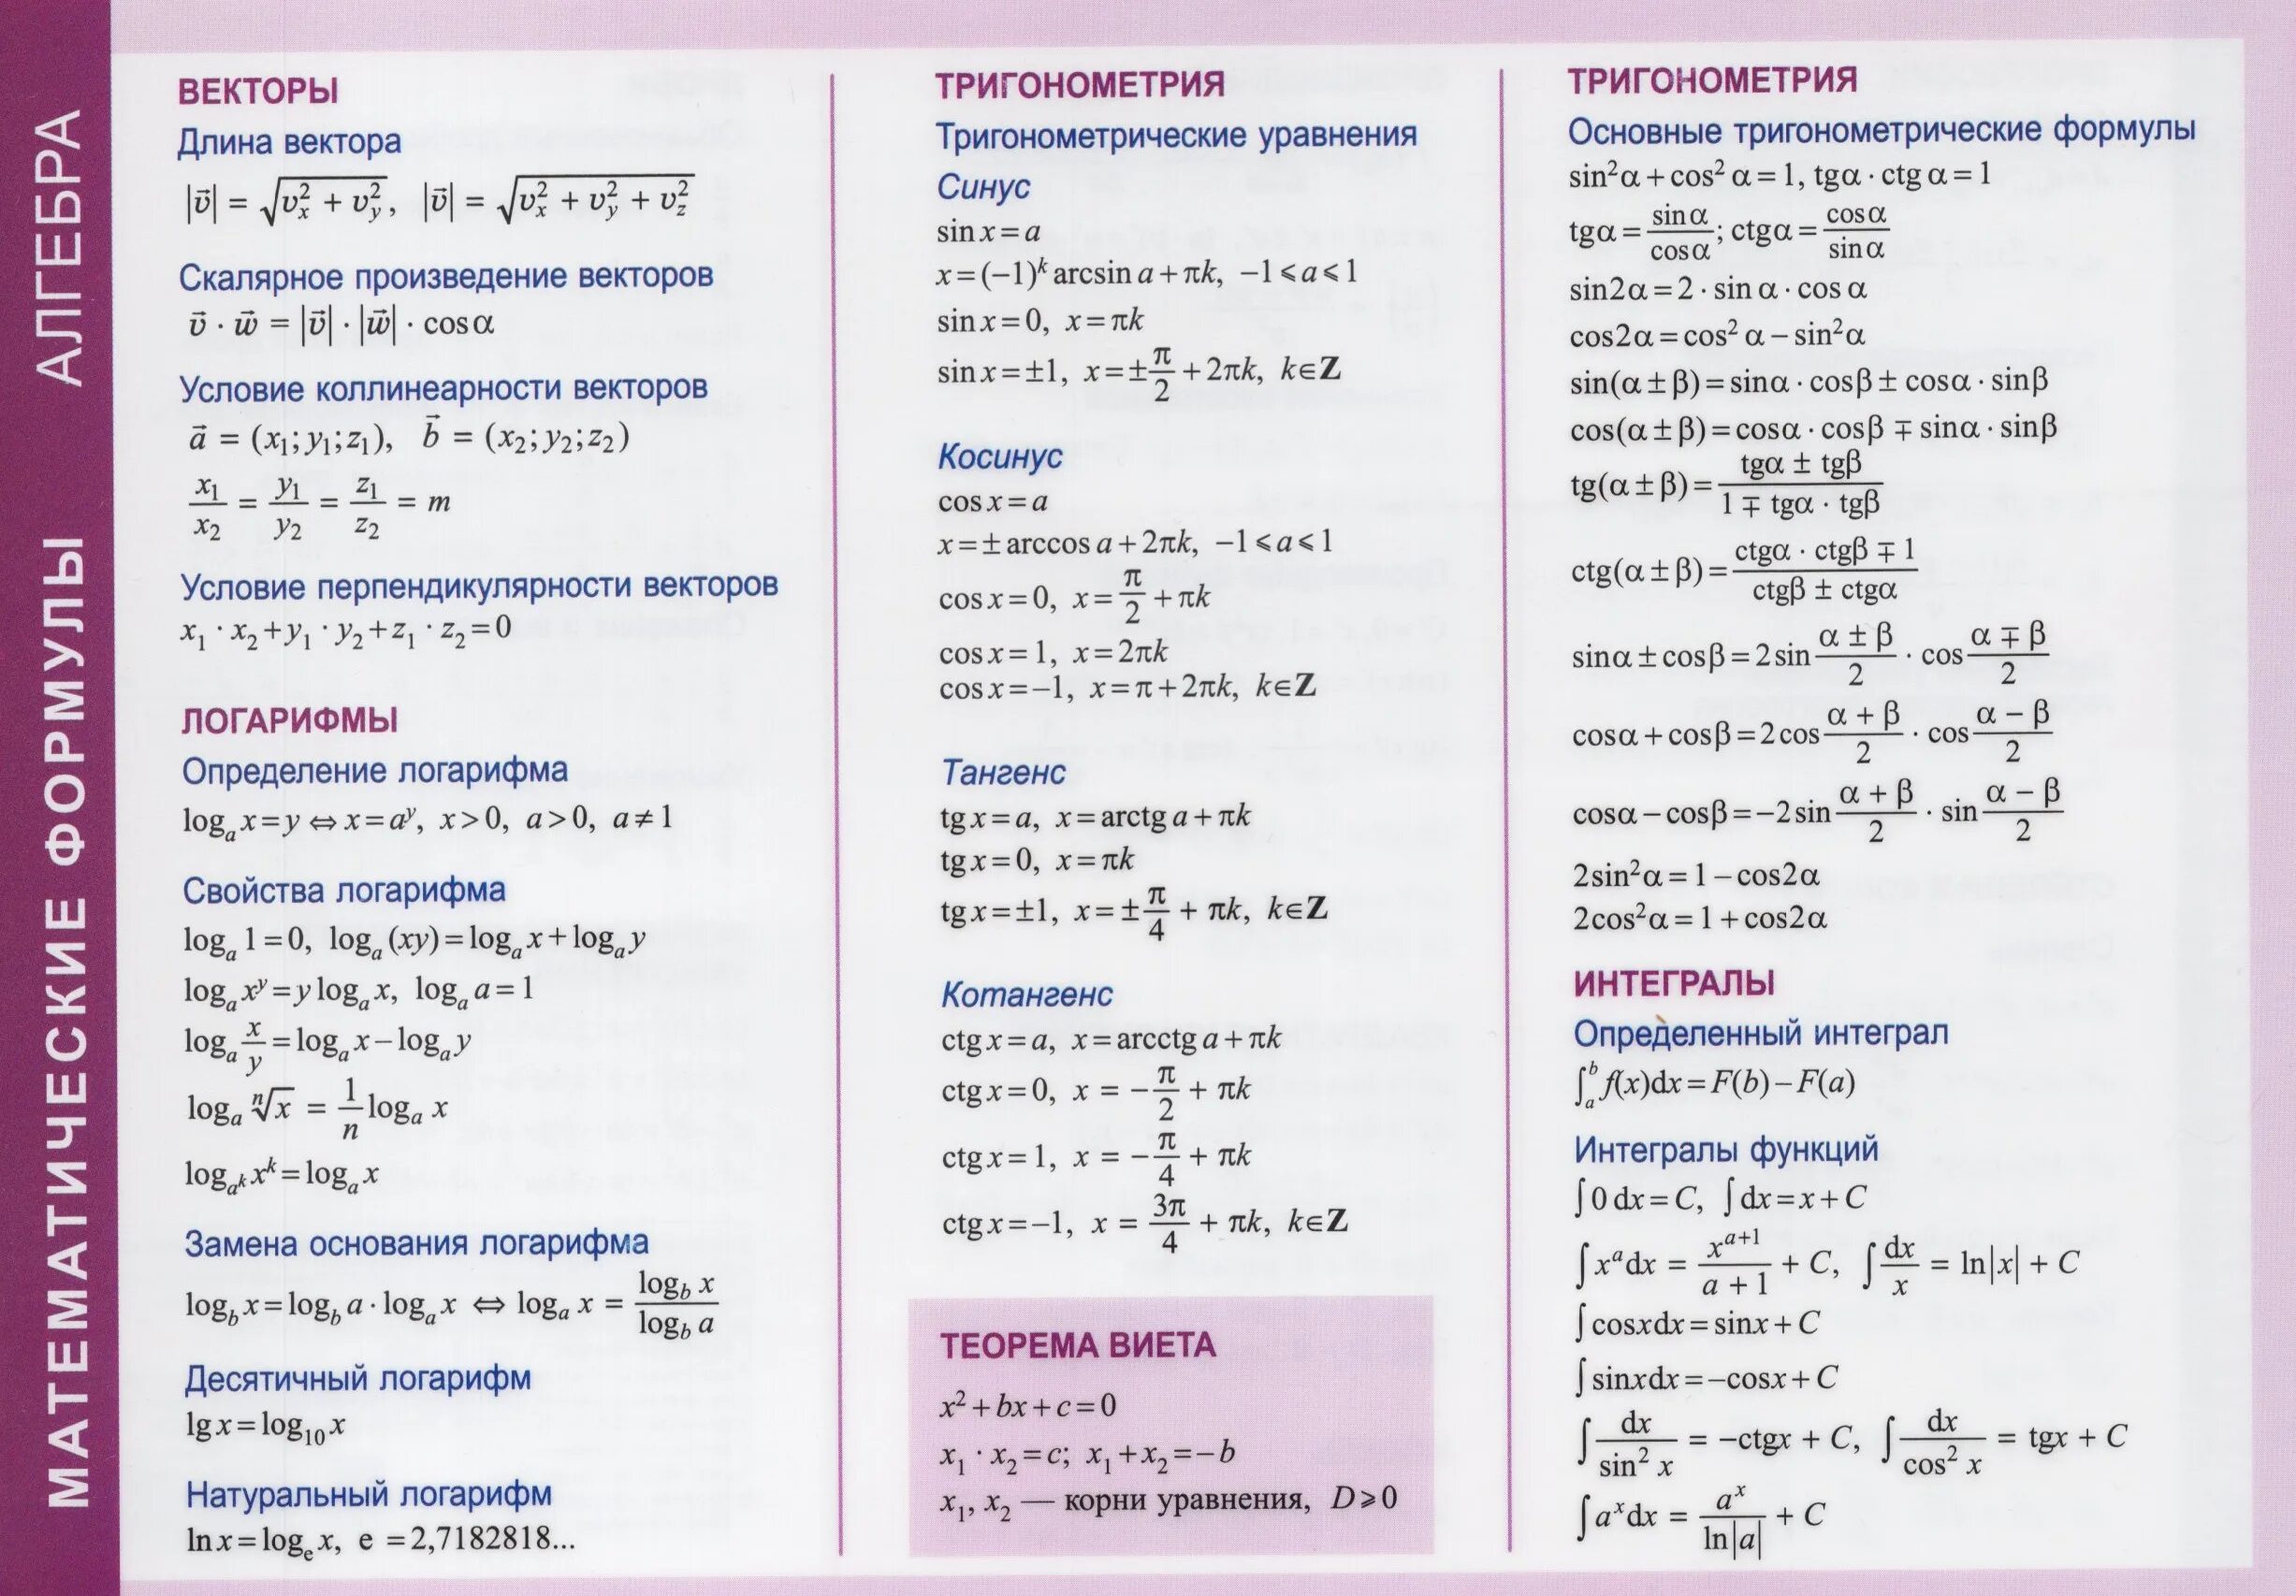 МАТЕМАТИЧЕСКИЕ ФОРМУЛЫ АЛГЕБРА
ВЕКТОРЫ
Длина вектора
|v⃗| = √(vₓ² + v_y²), |v⃗| = √(vₓ² + v_y² + v_z²)
Скалярное произведение векторов
v⃗ · w⃗ = |v⃗| · |w⃗| · cos α
Условие коллинеарности векторов
a⃗ = (x₁; y₁; z₁), b⃗ = (x₂; y₂; z₂)
x₁/x₂ = y₁/y₂ = z₁/z₂ = m
Условие перпендикулярности векторов
x₁ · x₂ + y₁ · y₂ + z₁ · z₂ = 0
ЛОГАРИФМЫ
Определение логарифма
logₐ x = y ⇔ x = a^y, x > 0, a > 0, a ≠ 1
Свойства логарифма
logₐ 1 = 0, logₐ (xy) = logₐ x + logₐ y
logₐ x^y = y logₐ x, logₐ a = 1
logₐ x/y = logₐ x − logₐ y
logₐ ⁿ√x = 1/n logₐ x
log_{a^k} x^k = logₐ x
Замена основания логарифма
log_b x = log_b a · logₐ x ⇔ logₐ x = log_b x / log_b a
Десятичный логарифм
lg x = log₁₀ x
Натуральный логарифм
ln x = logₑ x, e = 2,7182818...
ТРИГОНОМЕТРИЯ
Тригонометрические уравнения
Синус
sin x = a
x = (−1)^k arcsin a + πk, −1 ⩽ a ⩽ 1
sin x = 0, x = πk
sin x = ±1, x = ± π/2 + 2πk, k∈Z
Косинус
cos x = a
x = ± arccos a + 2πk, −1 ⩽ a ⩽ 1
cos x = 0, x = π/2 + πk
cos x = 1, x = 2πk
cos x = −1, x = π + 2πk, k∈Z
Тангенс
tg x = a, x = arctg a + πk
tg x = 0, x = πk
tg x = ±1, x = ± π/4 + πk, k∈Z
Котангенс
ctg x = a, x = arcctg a + πk
ctg x = 0, x = − π/2 + πk
ctg x = 1, x = − π/4 + πk
ctg x = −1, x = 3π/4 + πk, k∈Z
ТЕОРЕМА ВИЕТА
x² + bx + c = 0
x₁ · x₂ = c; x₁ + x₂ = −b
x₁, x₂ — корни уравнения, D ⩾ 0
ТРИГОНОМЕТРИЯ
Основные тригонометрические формулы
sin²α + cos² α = 1, tg α · ctg α = 1
tg α = sin α / cos α; ctg α = cos α / sin α
sin2α = 2 · sin α · cos α
cos2α = cos² α − sin²α
sin(α ± β) = sinα · cosβ ± cosα · sinβ
cos(α ± β) = cosα · cosβ ∓ sinα · sinβ
tg(α ± β) = (tgα ± tgβ) / (1 ∓ tgα · tgβ)
ctg(α ± β) = (ctgα · ctgβ ∓ 1) / (ctgβ ± ctgα)
sinα ± cosβ = 2 sin (α ± β)/2 · cos (α ∓ β)/2
cosα + cosβ = 2 cos (α + β)/2 · cos (α − β)/2
cosα − cosβ = −2 sin (α + β)/2 · sin (α − β)/2
2sin²α = 1 − cos2α
2cos²α = 1 + cos2α
ИНТЕГРАЛЫ
Определенный интеграл
∫ₐᵇ f(x)dx = F(b) − F(a)
Интегралы функций
∫ 0 dx = C, ∫ dx = x + C
∫ x^a dx = x^(a+1) / (a + 1) + C, ∫ dx/x = ln|x| + C
∫ cosxdx = sinx + C
∫ sinxdx = −cosx + C
∫ dx / sin² x = −ctgx + C, ∫ dx / cos² x = tgx + C
∫ a^x dx = a^x / ln|a| + C